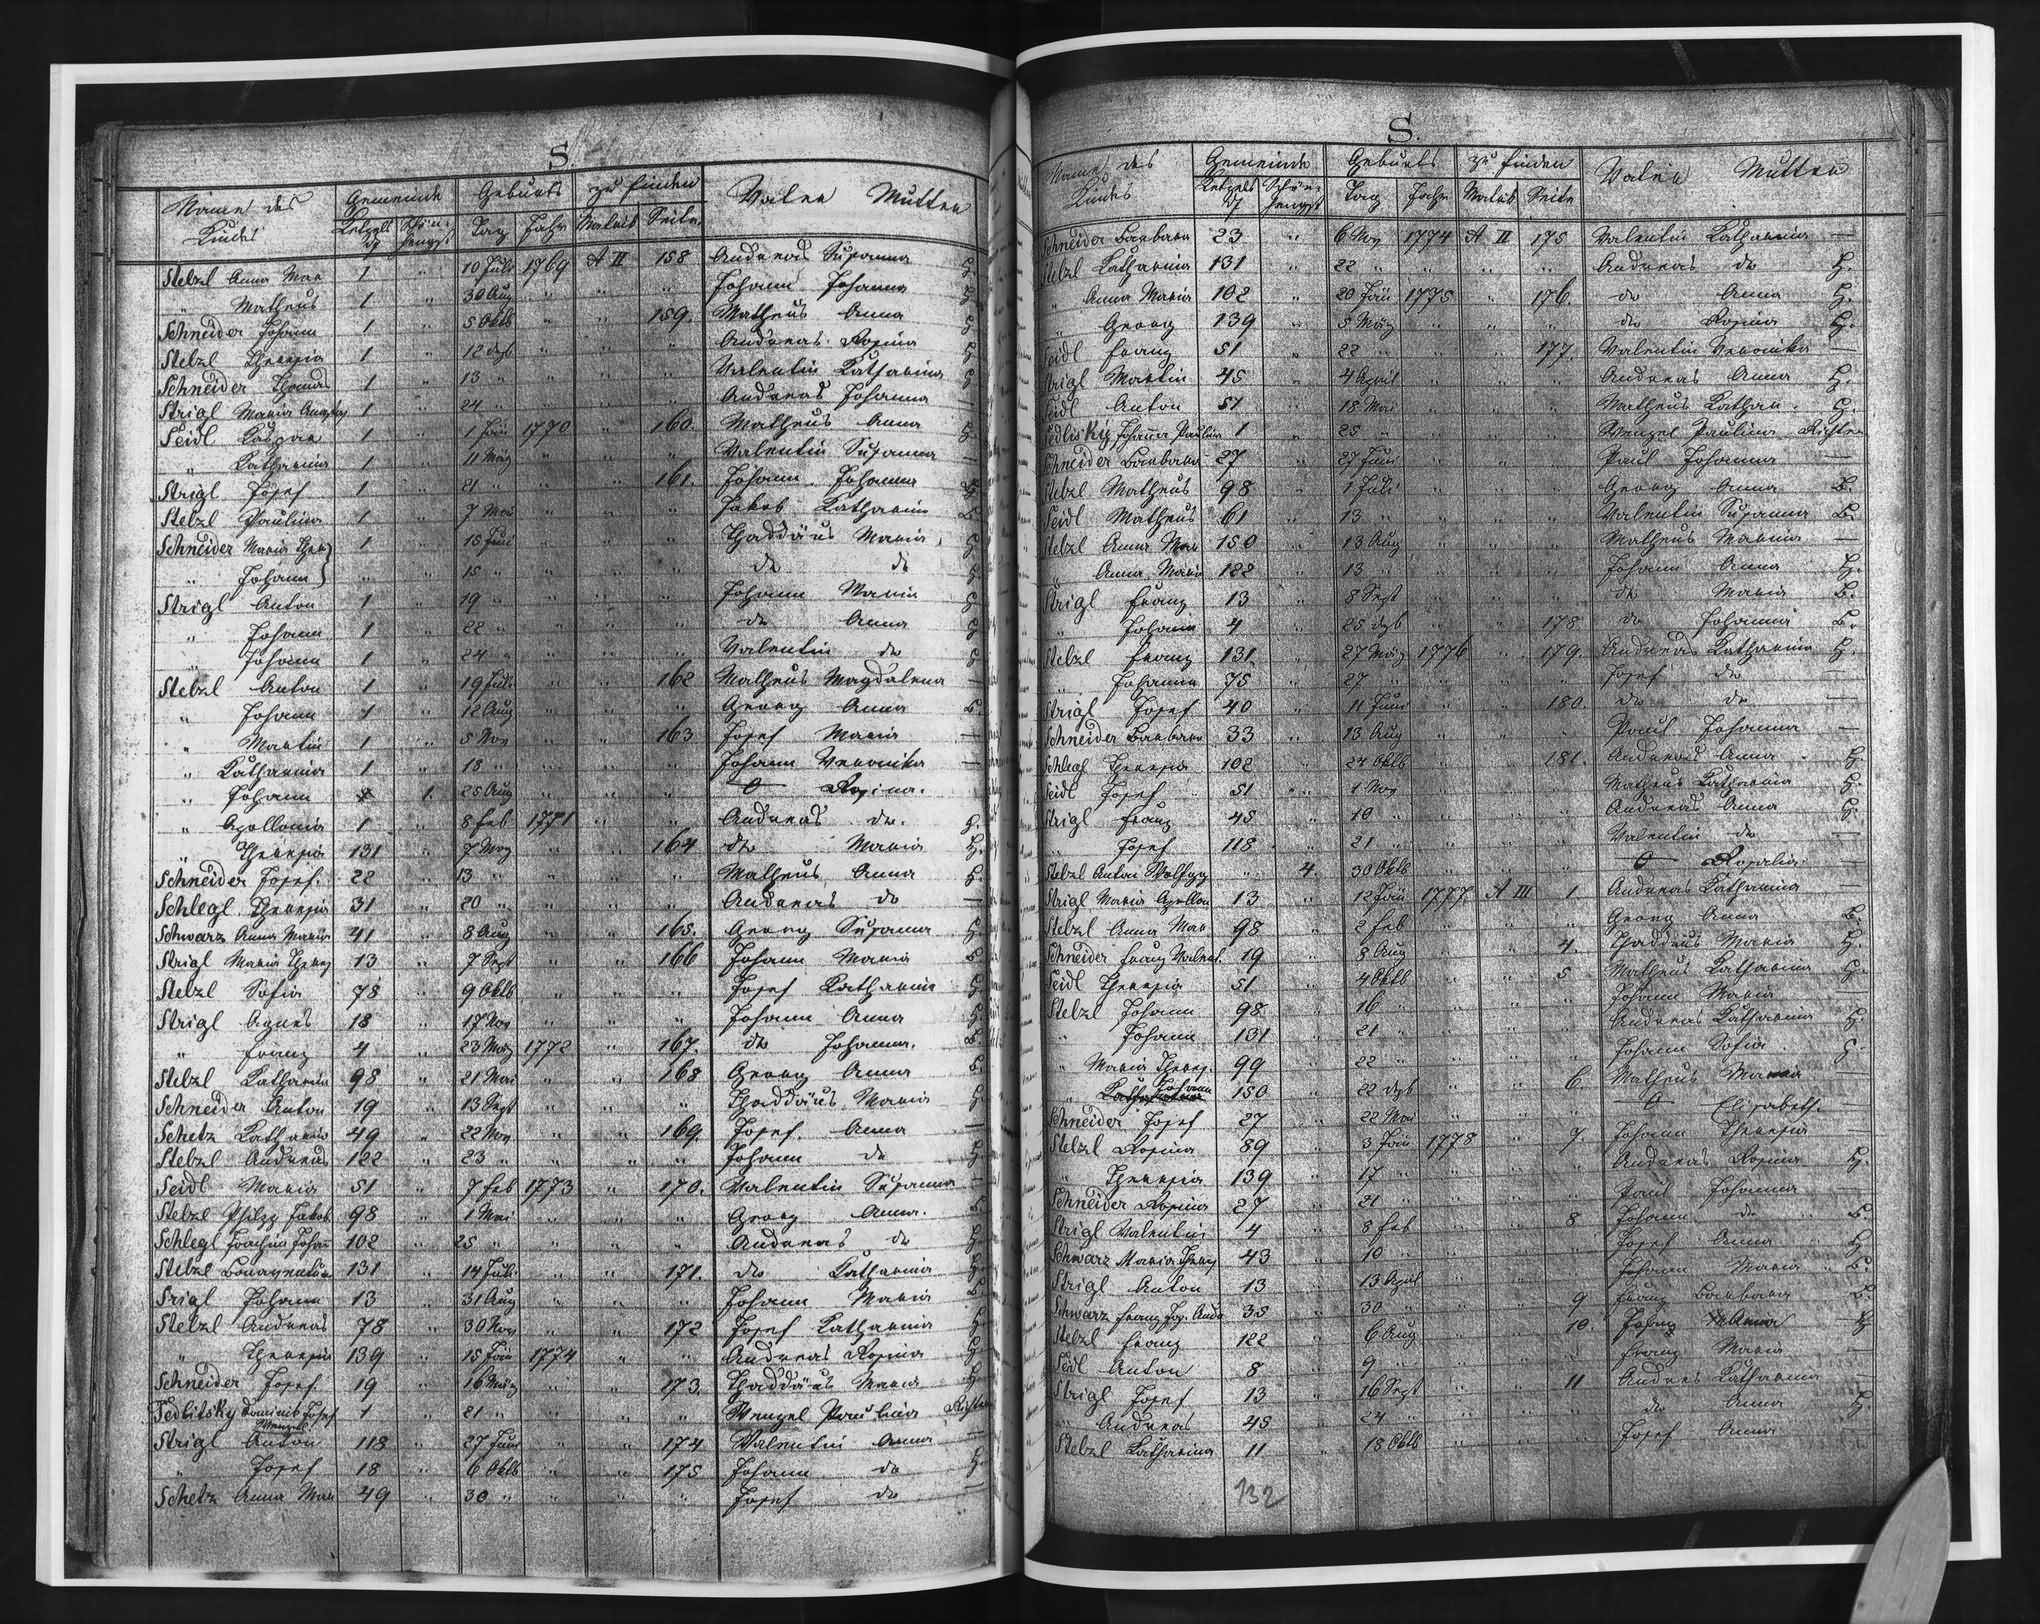 S.
Name des Kindes Gemeinde Geburts zu finden Vater Mutter
Ketzelsd Schönhengst Tag Jahr Matrik Seite
Stelzl Anna Mar 1 " 10 Juli 1769 A II 158 Andreas Susanna H.
" Matheus 1 " 30 Aug " " " Johann Johanna H
Schneider Johann 1 " 5 Oktb " " 159. Matheus Anna H
Stelzl Theresia 1 " 12 dzb " " " Andreas Rosina H
Schneider Thomas 1 " 13 " " " " Valentin Katharina H
Strigl Maria 1 " 24 " " " " Andreas Johanna
Seidl Kaspar 1 " 1 Jän 1770 " 160. Matheus Anna H.
" Katharina 1 " 11 März " " " Valentin Susanna —
Strigl Josef 1 " 21 " " " 161. Johann Johanna
Stelzl Paulina 1 " 7 Mai " " " Jakob Katharina
Schneider Maria Ther 1 " 15 Juni " " " Thaddäus Maria H
" Johann " " 15 " " " " dto dto H
Strigl Anton 1 " 19 " " " " Johann Maria H
" Johann 1 " 22 " " " " dto Anna H
" Johann 1 " 24 " " " " Valentin dto H
Stelzl Anton 1 " 19 Juli " " 162 Matheus Magdalena —
" Johann 1 " 12 Aug " " " Georg Anna B.
" Martin 1 " 5 Nov " " 163 Josef Maria —
" Katharina 1 " 18 " " " " Johann Veronika —
" Johann 1. 25 Aug " " " O Rosina.
" Apollonia 1 " 8 Feb 1771 " " Andreas dto. H.
" Theresia 131 " 7 May " " 164 dto Maria H.
Schneider Josef. 22 " 13 " " " " Matheus Anna H.
Schlegl Theresia 31 " 20 " " " " Andreas do —
Schwarz Anna Maria 41 " 8 Aug " " 165. Georg Susanna H.
Strigl Maria Theres 13 " 7 Sept " " 166 Johann Maria B.
Stelzl Sofia 78 " 9 Oktb " " " Josef Katharina H.
Strigl Agnes 18 " 17 Nov " " " Johann Anna H.
" Franz 4 " 23 März 1772 " 167. dto Johanna. B.
Stelzl Katharina 98 " 21 Mai " " 168 Georg Anna B.
Schneider Anton 19 " 13 Sept " " " Thaddäus Maria H.
Schetz Katharina 49 " 22 Nov " " 169. Josef. Anna —
Stelzl Andreas 122 " 23 " " " " Johann do H.
Seidl Maria 51 " 7 Feb 1773 " 170. Valentin Susanna —
Stelzl Philipp Jakob 98 " 1 Mai " " " Georg Anna. B.
Schlegl Joachim Johann 102 " 25 " " " " Andreas do H.
Stelzl Bonaventura 131 " 14 Juli " " 171. do Katharina H.
Srigl Johann 13 " 31 Aug " " " Johann Maria B.
Stelzl Andreas 78 " 30 Nov " " 172 Josef Katharina H.
" Theresia 139 " 15 Jän 1774 " " Andreas Rosina H.
Schneider Josef. 19 " 16 März " " 173. Thaddäus Maria H
Sedlitsky Dominik Josef Wenzel 1 " 21 " " " " Wenzel Paulina Richter
Strigl Anton 118 " 27 Juni " " 174 Valentin Anna —
" Josef 18 " 6 Oktb " " 175 Johann do H.
Schetz Anna Mar 49 " 30 " " " " Josef do —
S.
Name des Kindes Gemeinde Geburts zu finden Vater Mutter
Ketzelsd Schönhengst Tag Jahr Matrik Seite
Schneider Barbara 23 " 6 Nov 1774 A II 175 Valentin Katharina —
Stelzl Katharina 131 " 22 " " " " Andreas do H.
" Anna Maria 102 " 20 Jän 1775 " 176. do Anna H.
" Georg 139 " 5 März " " " do Rosina H.
Seidl Franz 51 " 22 " " " 177. Valentin Veronika —
Strigl Martin 45 " 4 April " " " Andreas Anna H.
Seidl Anton 51 " 18 Mai " " " Matheus Kathar. H.
Sedlisky Johanna Paulina 1 " 25 " " " " Wenzel Paulina Richter
Schneider Barbara 27 " 27 Juni " " " Paul Johanna —
Stelzl Matheus 98 " 1 Juli " " " Georg Anna B.
Seidl Matheus 61 " 13 " " " " Valentin Susanna B.
Stelzl Anna Mar 150 " 13 Aug " " " Matheus Maria —
" Anna Maria 122 " 13 " " " " Johann Anna H.
Strigl Franz 13 " 8 Sept " " " do Maria B.
" Johann 4 " 25 dzb " " 178 do Johanna B.
Stelzl Franz 131 " 27 März 1776 " 179. Andreas Katharina H.
" Johanna 75 " 27 " " " " Josef do —
Strigl Josef 40 " 11 Juni " " 180. do do —
Schneider Barbara 33 " 13 Aug " " " Paul Johanna —
Schlegl Theresia 102 " 24 Oktb " " 181. Andreas Anna H
Seidl Josef 51 " 1 Nov " " " Matheus Katharina H.
Strigl Franz 45 " 19 " " " " Andreas Anna H.
" Josef 118 " 21 " " " " Valentin do —
Stelzl Anton Wolfgg " 4. 30 Oktb " " " O Rosalia —
Strigl Maria Apollon 13 " 12 Jän 1777. A III 1 Andreas Katharina —
Stelzl Anna Mar 98 " 2 Feb " " " Georg Anna B.
Schneider Franz Valent. 19 " 8 Aug " " 4. Thaddäus Maria H.
Seidl Theresia 51 " 4 Oktb " " 5 Matheus Katharina H.
Stelzl Johann 98 " 16 " " " " Johann Maria —
" Johann 131 " 21 " " " " Andreas Katharina H.
" Maria Theres. 99 " 22 " " " " Johann Sofia H.
" Johann 150 " 22 dzb " " 6. Matheus Maria —
Schneider Josef 27 " 22 Mai " " " O Elisabeth. —
Stelzl Rosina 89 " 3 Jän 1778 " 7. Johann Theresia
" Theresia 139 " 17 " " " " Andreas Rosina H.
Schneider Rosina 27 " 21 " " " " Paul Johanna —
Strigl Valentin 4 " 8 Feb " " 8 Johann do B.
Schwarz Maria Theres 43 " 10 " " " " Josef Anna H.
Strigl Anton 13 " 13 April " " " Johann Maria B.
Schwarz Franz Jos. Andr 35 " 30 " " " 9 Franz Barbara B.
Stelzl Franz 122 " 6 Aug " " 10. Johann Anna H
Seidl Anton 8 " 9 " " " " Franz Maria —
Strigl Josef 13 " 16 Sept " " 11 Andreas Katharina —
" Andreas 45 " 24 " " " " do Anna H.
Stelzl Katharina 11 " 18 Oktb " " " Josef Anna —
132